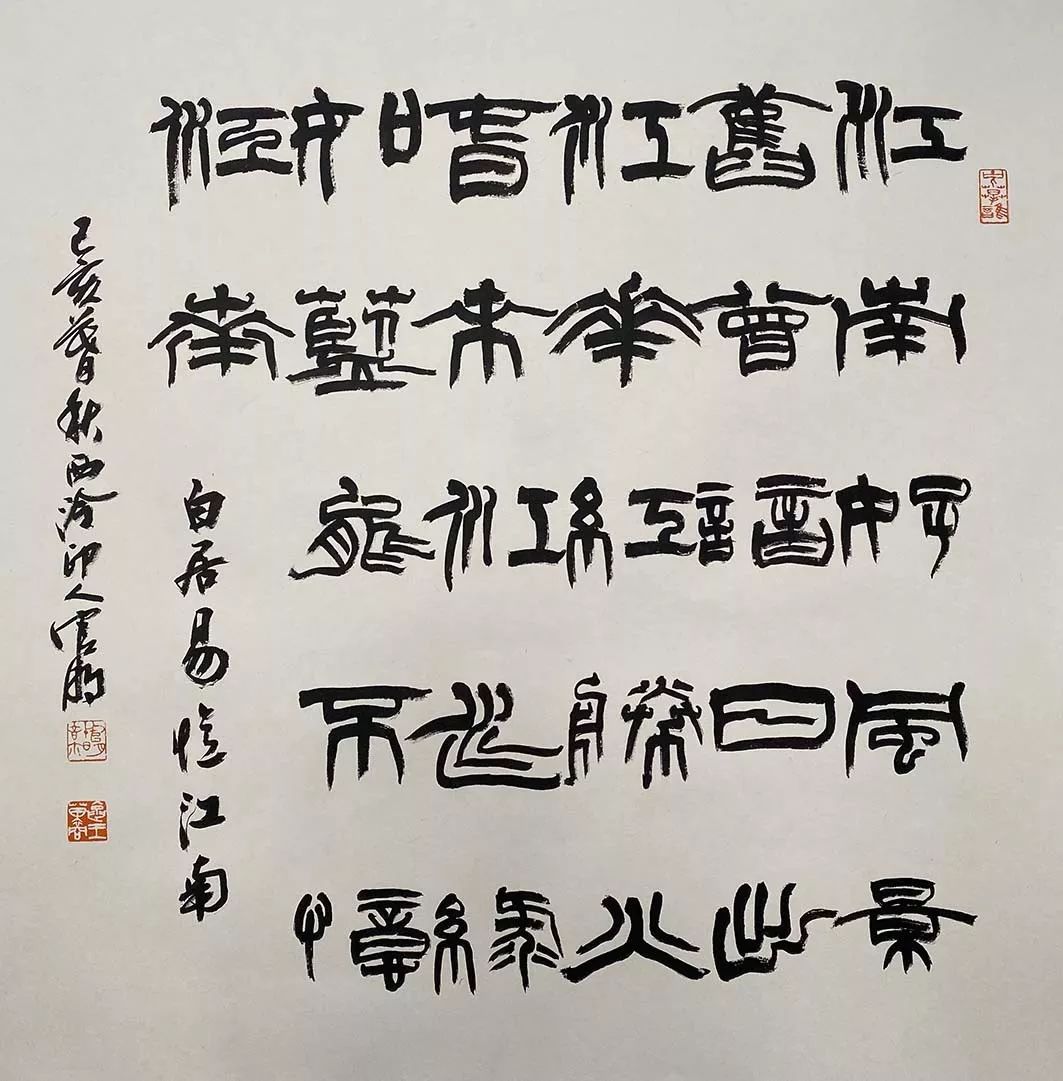 江南好風景
舊曾諳日出
江華紅勝火
春來江水綠
如藍能不憶
江南
白居易憶江南
己亥暮秋西泠印人